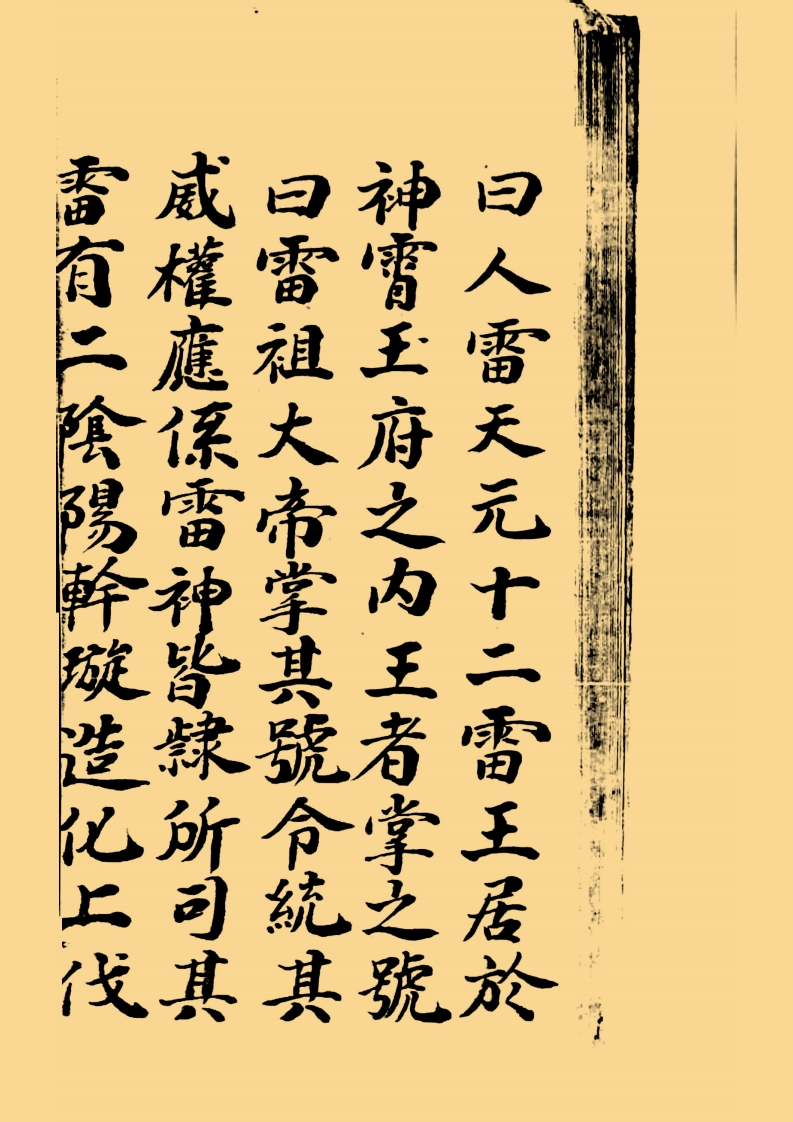 曰人雷天元十二雷王居於
神霄玉府之内王者掌之號
曰雷祖大帝掌其號令統其
威權應係雷神皆隸所司其
雷有二陰陽幹璇造化上伐